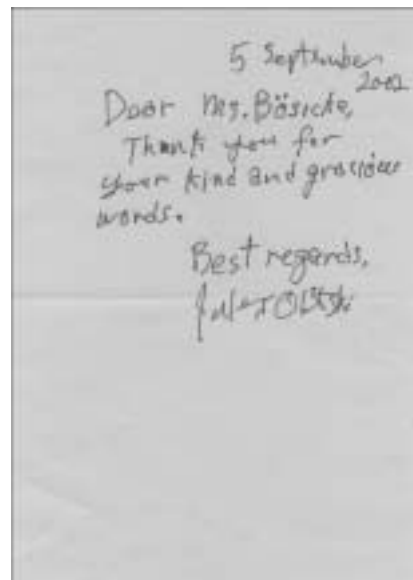 5 September
2002
Dear Ms. Bösicke,
Thank you for
your kind and gracious
words.
Best regards,
Jules Olitski